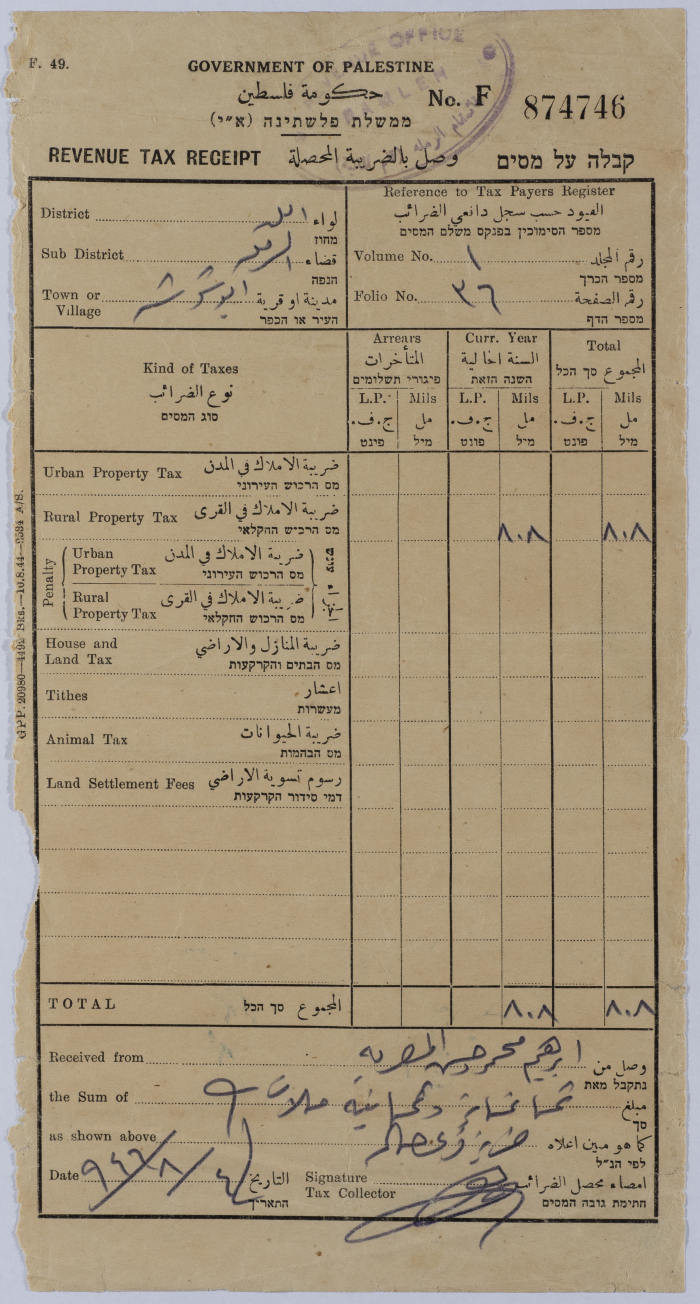 F. 49.
GOVERNMENT OF PALESTINE
حكومة فلسطين
ממשלת פלשתינה (א״י)
No. F 874746
REVENUE TAX RECEIPT وصل بالضريبة المحصلة קבלה על מסים
OFFICE
District لواء اللد
מחוז
Sub District قضاء الرملة
הנפה
Town or Village مدينة او قرية ابو شوشه
העיר או הכפר
Reference to Tax Payers Register
القيود حسب سجل دافعي الضرائب
מספר הסימוכין בפנקס משלם המסים
Volume No. ١ رقم المجلد
מספר הכרך
Folio No. ٣٦ رقم الصفحة
מספר הדף
Kind of Taxes
نوع الضرائب
סוג המסים
Arrears
المتأخرات
פיגורי תשלומים
Curr. Year
السنة الحالية
השנה הזאת
Total
المجموع סך הכל
L.P. Mils L.P. Mils L.P. Mils
ج.ف. مل ج.ف. مل ج.ف. مل
פינט מיל פונט מיל פונט מיל
Urban Property Tax ضريبة الاملاك في المدن
מס הרכוש העירוני
Rural Property Tax ضريبة الاملاك في القرى ٨٠٨ ٨٠٨
מס הרכיש החקלאי
Penalty
Urban Property Tax ضريبة الاملاك في المدن
מס הרכוש העירוני
Rural Property Tax ضريبة الاملاك في القرى
מס הרכוש החקלאי
עונש
House and Land Tax ضريبة المنازل والاراضي
מס הבתים והקרקעות
Tithes اعشار
מעשרות
Animal Tax ضريبة الحيوانات
מס הבהמות
Land Settlement Fees رسوم تسوية الاراضي
דמי סידור הקרקעות
TOTAL المجموع סך הכל ٨٠٨ ٨٠٨
Received from ابرهيم محمد حسن وصل من
נתקבל מאת
the Sum of ثمانماية وثمانية ملات مبلغ
סך
as shown above كما هو مبين اعلاه
לפי הנ״ל
Date ٩٤٦/٨/٤ التاريخ
התאריך
Signature Tax Collector امضاء محصل الضرائب
חתימת גובה המסים
GPP. 20980—4492 Bks.—10.8.44—2534 A/S.